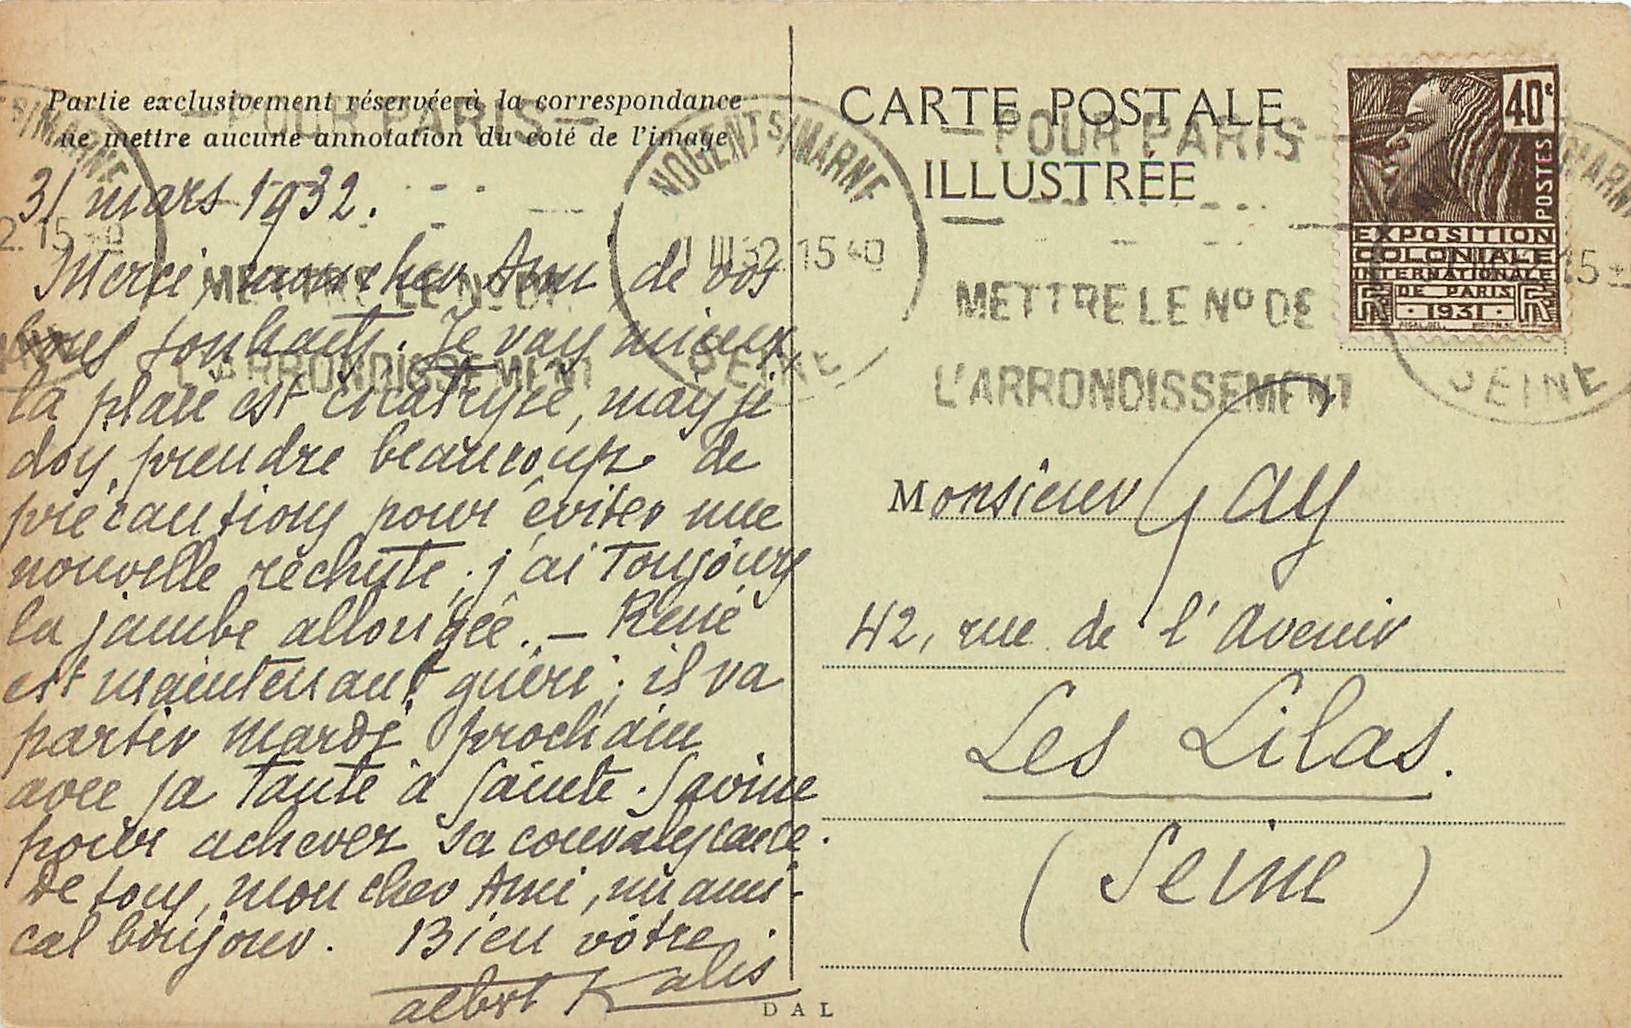 Partie exclusivement réservée à la correspondance
ne mettre aucune annotation du coté de l'image
31 mars 1932.
Merci, mon cher Ami, de vos
bons souhaits. Je vais mieux
la plaie est cicatrisée, mais je
dois prendre beaucoup de
précautions pour éviter une
nouvelle rechute ; j'ai toujours
la jambe allongée. — René
est maintenant guéri ; il va
partir mardi prochain
avec sa tante à Sainte-Savine
pour achever sa convalescence.
De tous, mon cher Ami, un ami-
cal bonjour. Bien vôtre.
Albert Kalis
CARTE POSTALE
ILLUSTRÉE
Monsieur Gay
42, rue de l'Avenir
Les Lilas.
(Seine)
DAL
40c
POSTES
EXPOSITION
COLONIALE
INTERNATIONALE
DE PARIS
RF · 1931 · RF
NOGENT S/MARNE
III 32 15 40
SEINE
— POUR PARIS —
METTRE LE No DE
L'ARRONDISSEMENT
— POUR PARIS —
METTRE LE No DE
L'ARRONDISSEMENT
S/MARNE
15 40
SEINE